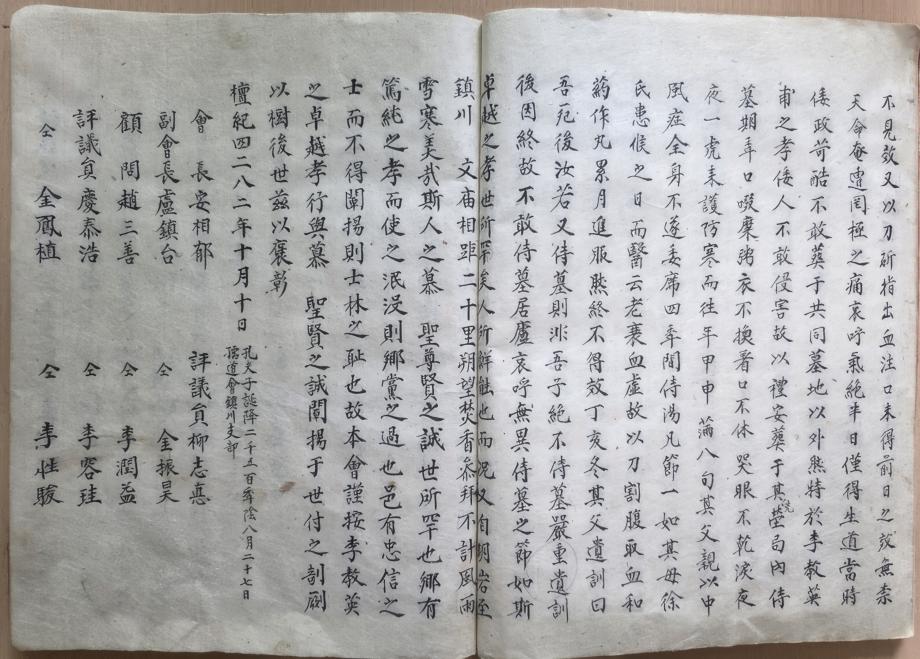 不見效又以刀斫指出血注口未得前日之效無柰
天命奄遭罔極之痛哀呼氣絶半日僅得生道當時
倭政苛酷不敢葬于共同墓地以外然特於李教英
甫之孝倭人不敢侵害故以禮安葬于其先塋局內侍
墓期年口啜糜粥衣不換着口不休哭眼不乾淚夜
夜一虎來護防寒而往年甲申蒲八旬其父親以中
風症全身不遂委席四年間侍湯凡節一如其母徐
氏患候之日而醫云老衰血虛故以刀割腹取血和
藥作丸累月進服然終不得效丁亥冬其父遺訓曰
吾死後汝若又侍墓則非吾子絶不侍墓嚴重遺訓
後因終故不敢侍墓居廬哀呼無異侍墓之節如斯
卓越之孝世所罕矣人所鮮能也而况又自明岩至
鎭川 文庙相距二十里朔望焚香叅拜不計風雨
雪寒美哉斯人之慕 聖尊賢之誠世所罕也鄉有
篤純之孝而使之泯沒則鄉黨之過也邑有忠信之
士而不得闡揚則士林之恥也故本會謹按李教英
之卓越孝行與慕 聖賢之誠闡揚于世付之剞劂
以樹後世茲以褒彰
檀紀四二八二年十月十日
孔夫子誕降二千五百年陰八月二十七日
儒道會鎭川支部
會長安相郁
副會長盧鎭台
顧問趙三善
評議員慶泰浩
仝 金鳳植
評議員柳志憙
仝 金振昊
仝 李潤益
仝 李容珪
仝 李性駿